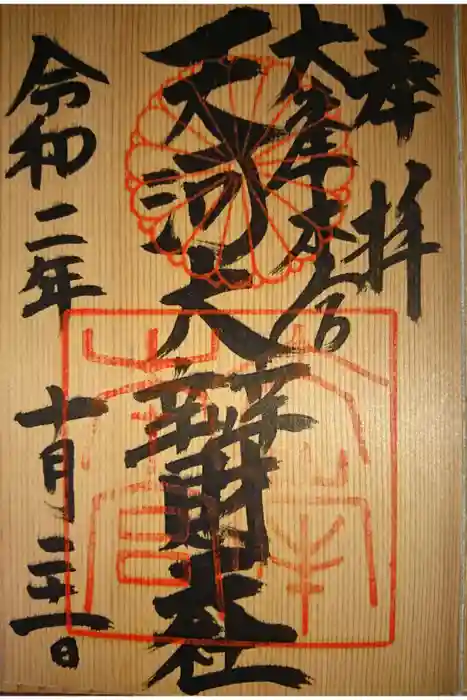 奉拝
大峯本宮
天河大辨財天社
令和二年十月二十一日